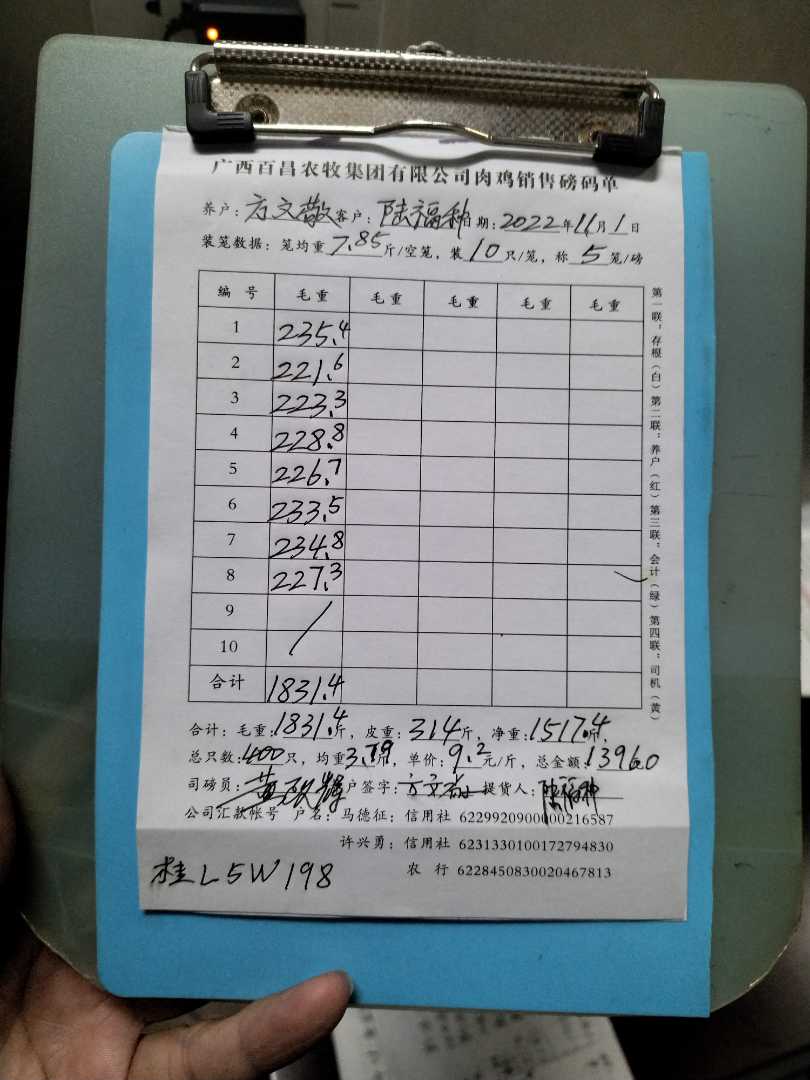 广西百昌农牧集团有限公司肉鸡销售磅码单
养户:方文敬 客户:陆福种 日期:2022年11月1日
装笼数据:笼均重7.85斤/空笼,装10只/笼,称5笼/磅
编号 毛重 毛重 毛重 毛重 毛重
1 235.4
2 221.6
3 223.3
4 228.8
5 226.7
6 233.5
7 234.8
8 227.3
9 /
10
合计 1831.4
第一联:存根(白)第二联:养户(红)第三联:会计(绿)第四联:司机(黄)
合计:毛重:1831.4斤,皮重:314斤,净重:1517.4斤,
总只数:400只,均重3.79斤,单价:9.2元/斤,总金额:13960
司磅员:黄 户签字:方文 提货人:陆福种
公司汇款帐号 户名:马德征:信用社 6229920900000216587
许兴勇:信用社 6231330100172794830
农行 6228450830020467813
桂L5W198